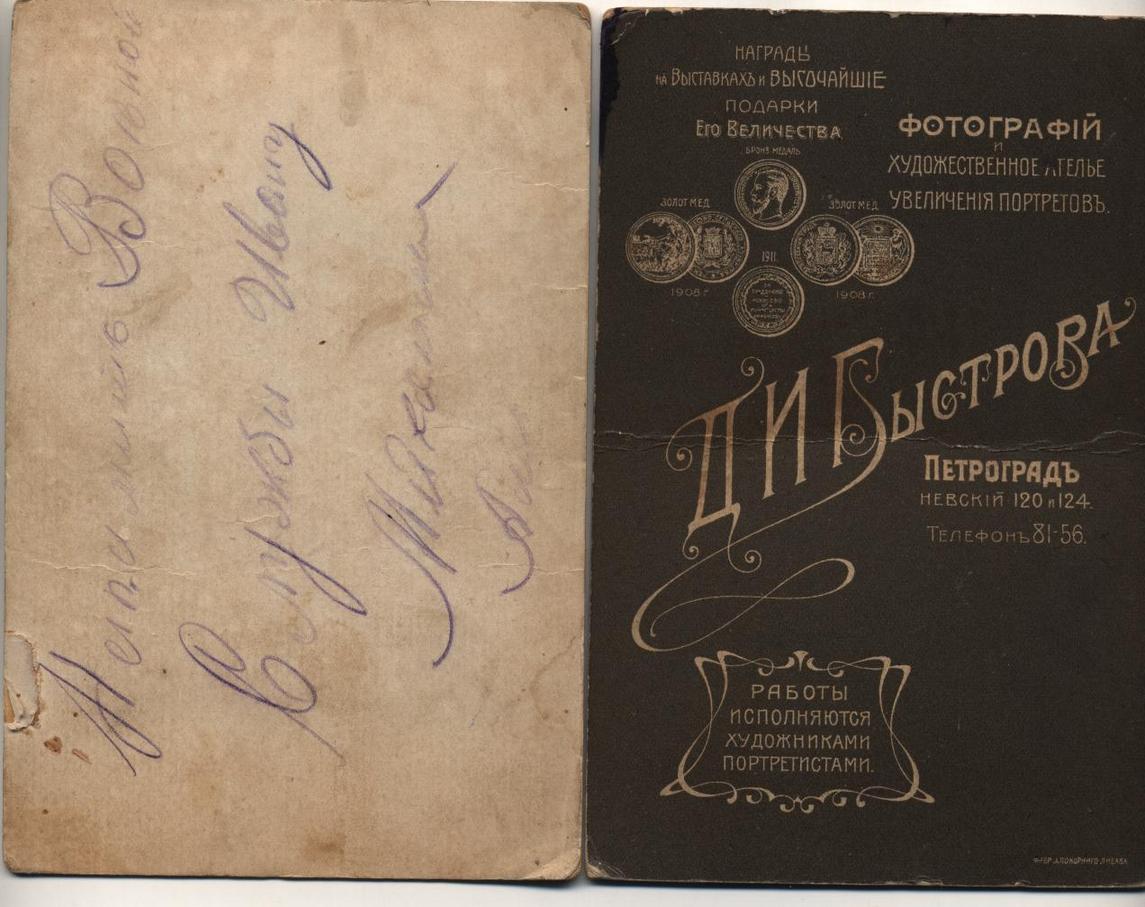 Воиной
Службы Ивану
НАГРАДЫ
на ВЫСТАВКАХЪ и ВЫСОЧАЙШІЕ
ПОДАРКИ
ЕГО ВЕЛИЧЕСТВА
БРОНЗ МЕДАЛЬ
ЗОЛОТ МЕД
ЗОЛОТ МЕД
1911
1908 г
1908 г.
ФОТОГРАФІЙ
И
ХУДОЖЕСТВЕННОЕ АТЕЛЬЕ
УВЕЛИЧЕНІЯ ПОРТРЕТОВЪ.
Д И БЫСТРОВА
ПЕТРОГРАДЪ
НЕВСКІЙ 120 и 124.
ТЕЛЕФОНЪ 81-56.
РАБОТЫ
ИСПОЛНЯЮТСЯ
ХУДОЖНИКАМИ
ПОРТРЕТИСТАМИ.